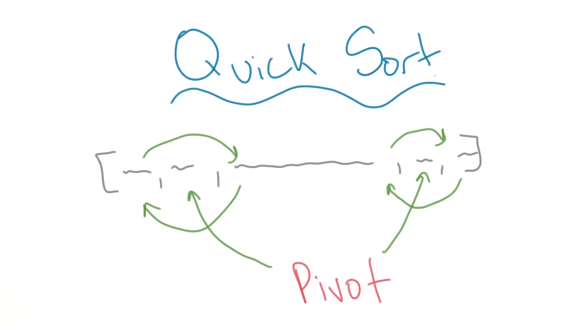 Quick Sort
Pivot